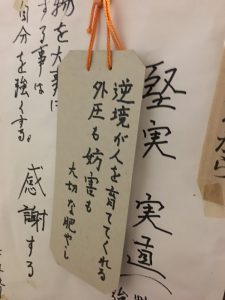 堅実 実直
逆境が人を育ててくれる
外圧も妨害も
大切な肥やし
物を大事に
する事は
自分を強くする。
感謝する
から